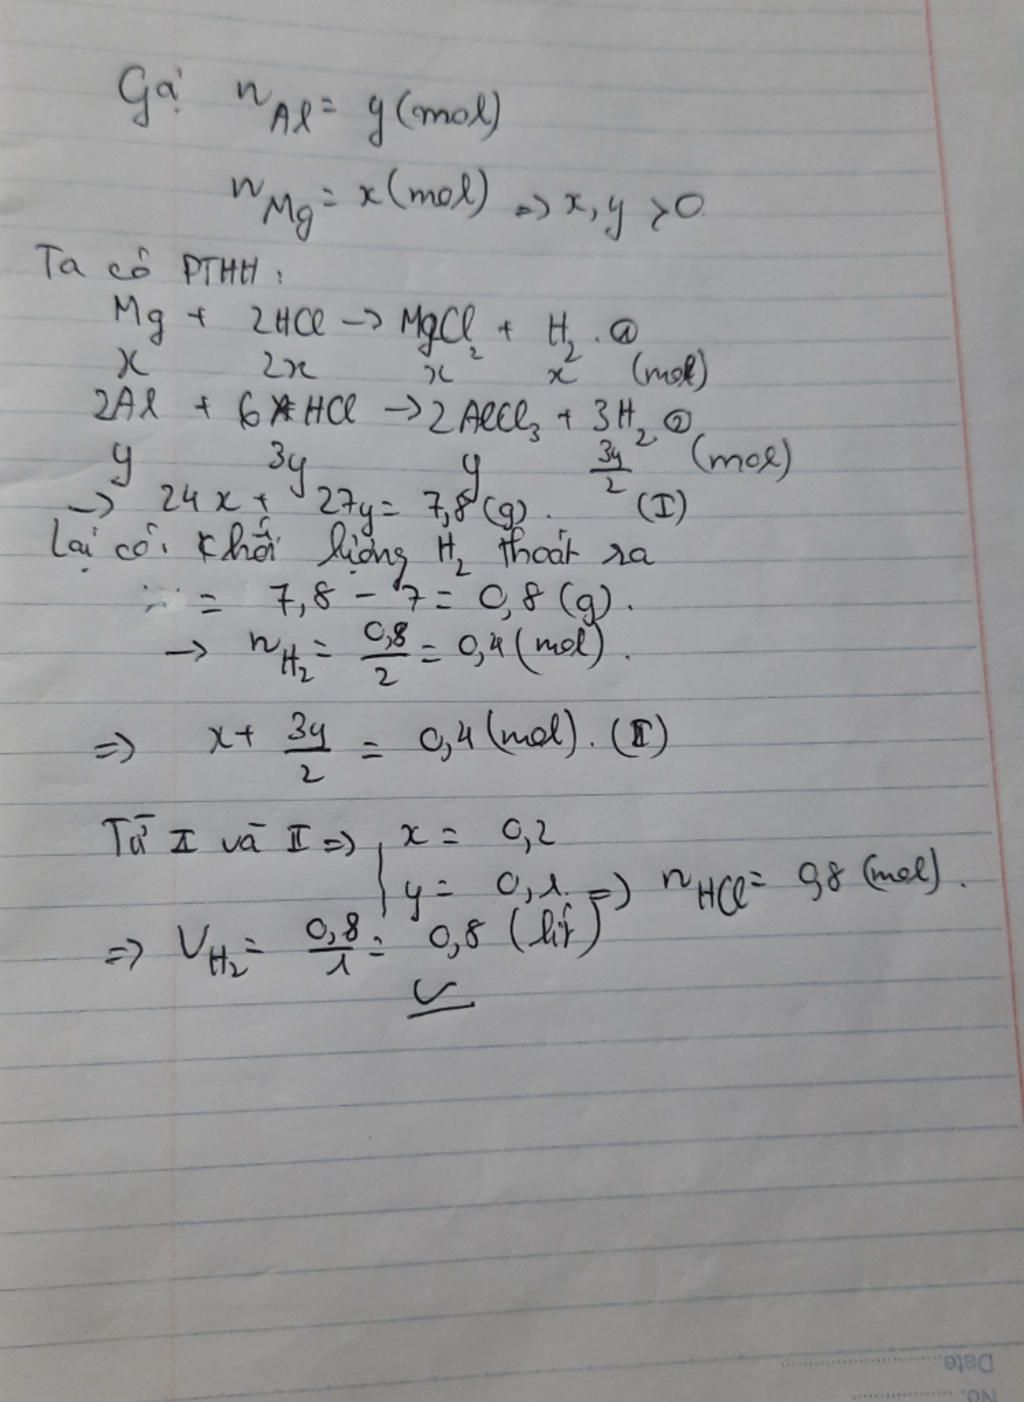 Gọi n_Al = y (mol)
n_Mg = x (mol) => x, y > 0.
Ta có PTHH:
Mg + 2HCl -> MgCl₂ + H₂. ①
x 2x x x (mol)
2Al + 6 HCl -> 2AlCl₃ + 3H₂ ②
y 3y y 3y/2 (mol)
-> 24x + 27y = 7,8 (g). (I)
Lại có: Khối lượng H₂ thoát ra
= 7,8 - 7 = 0,8 (g).
-> n_H₂ = 0,8/2 = 0,4 (mol).
=> x + 3y/2 = 0,4 (mol). (II)
Từ I và II => x = 0,2
y = 0,1. => n_HCl = 0,8 (mol).
=> V_H₂ = 0,8/1 = 0,8 (lít)
Date
No.